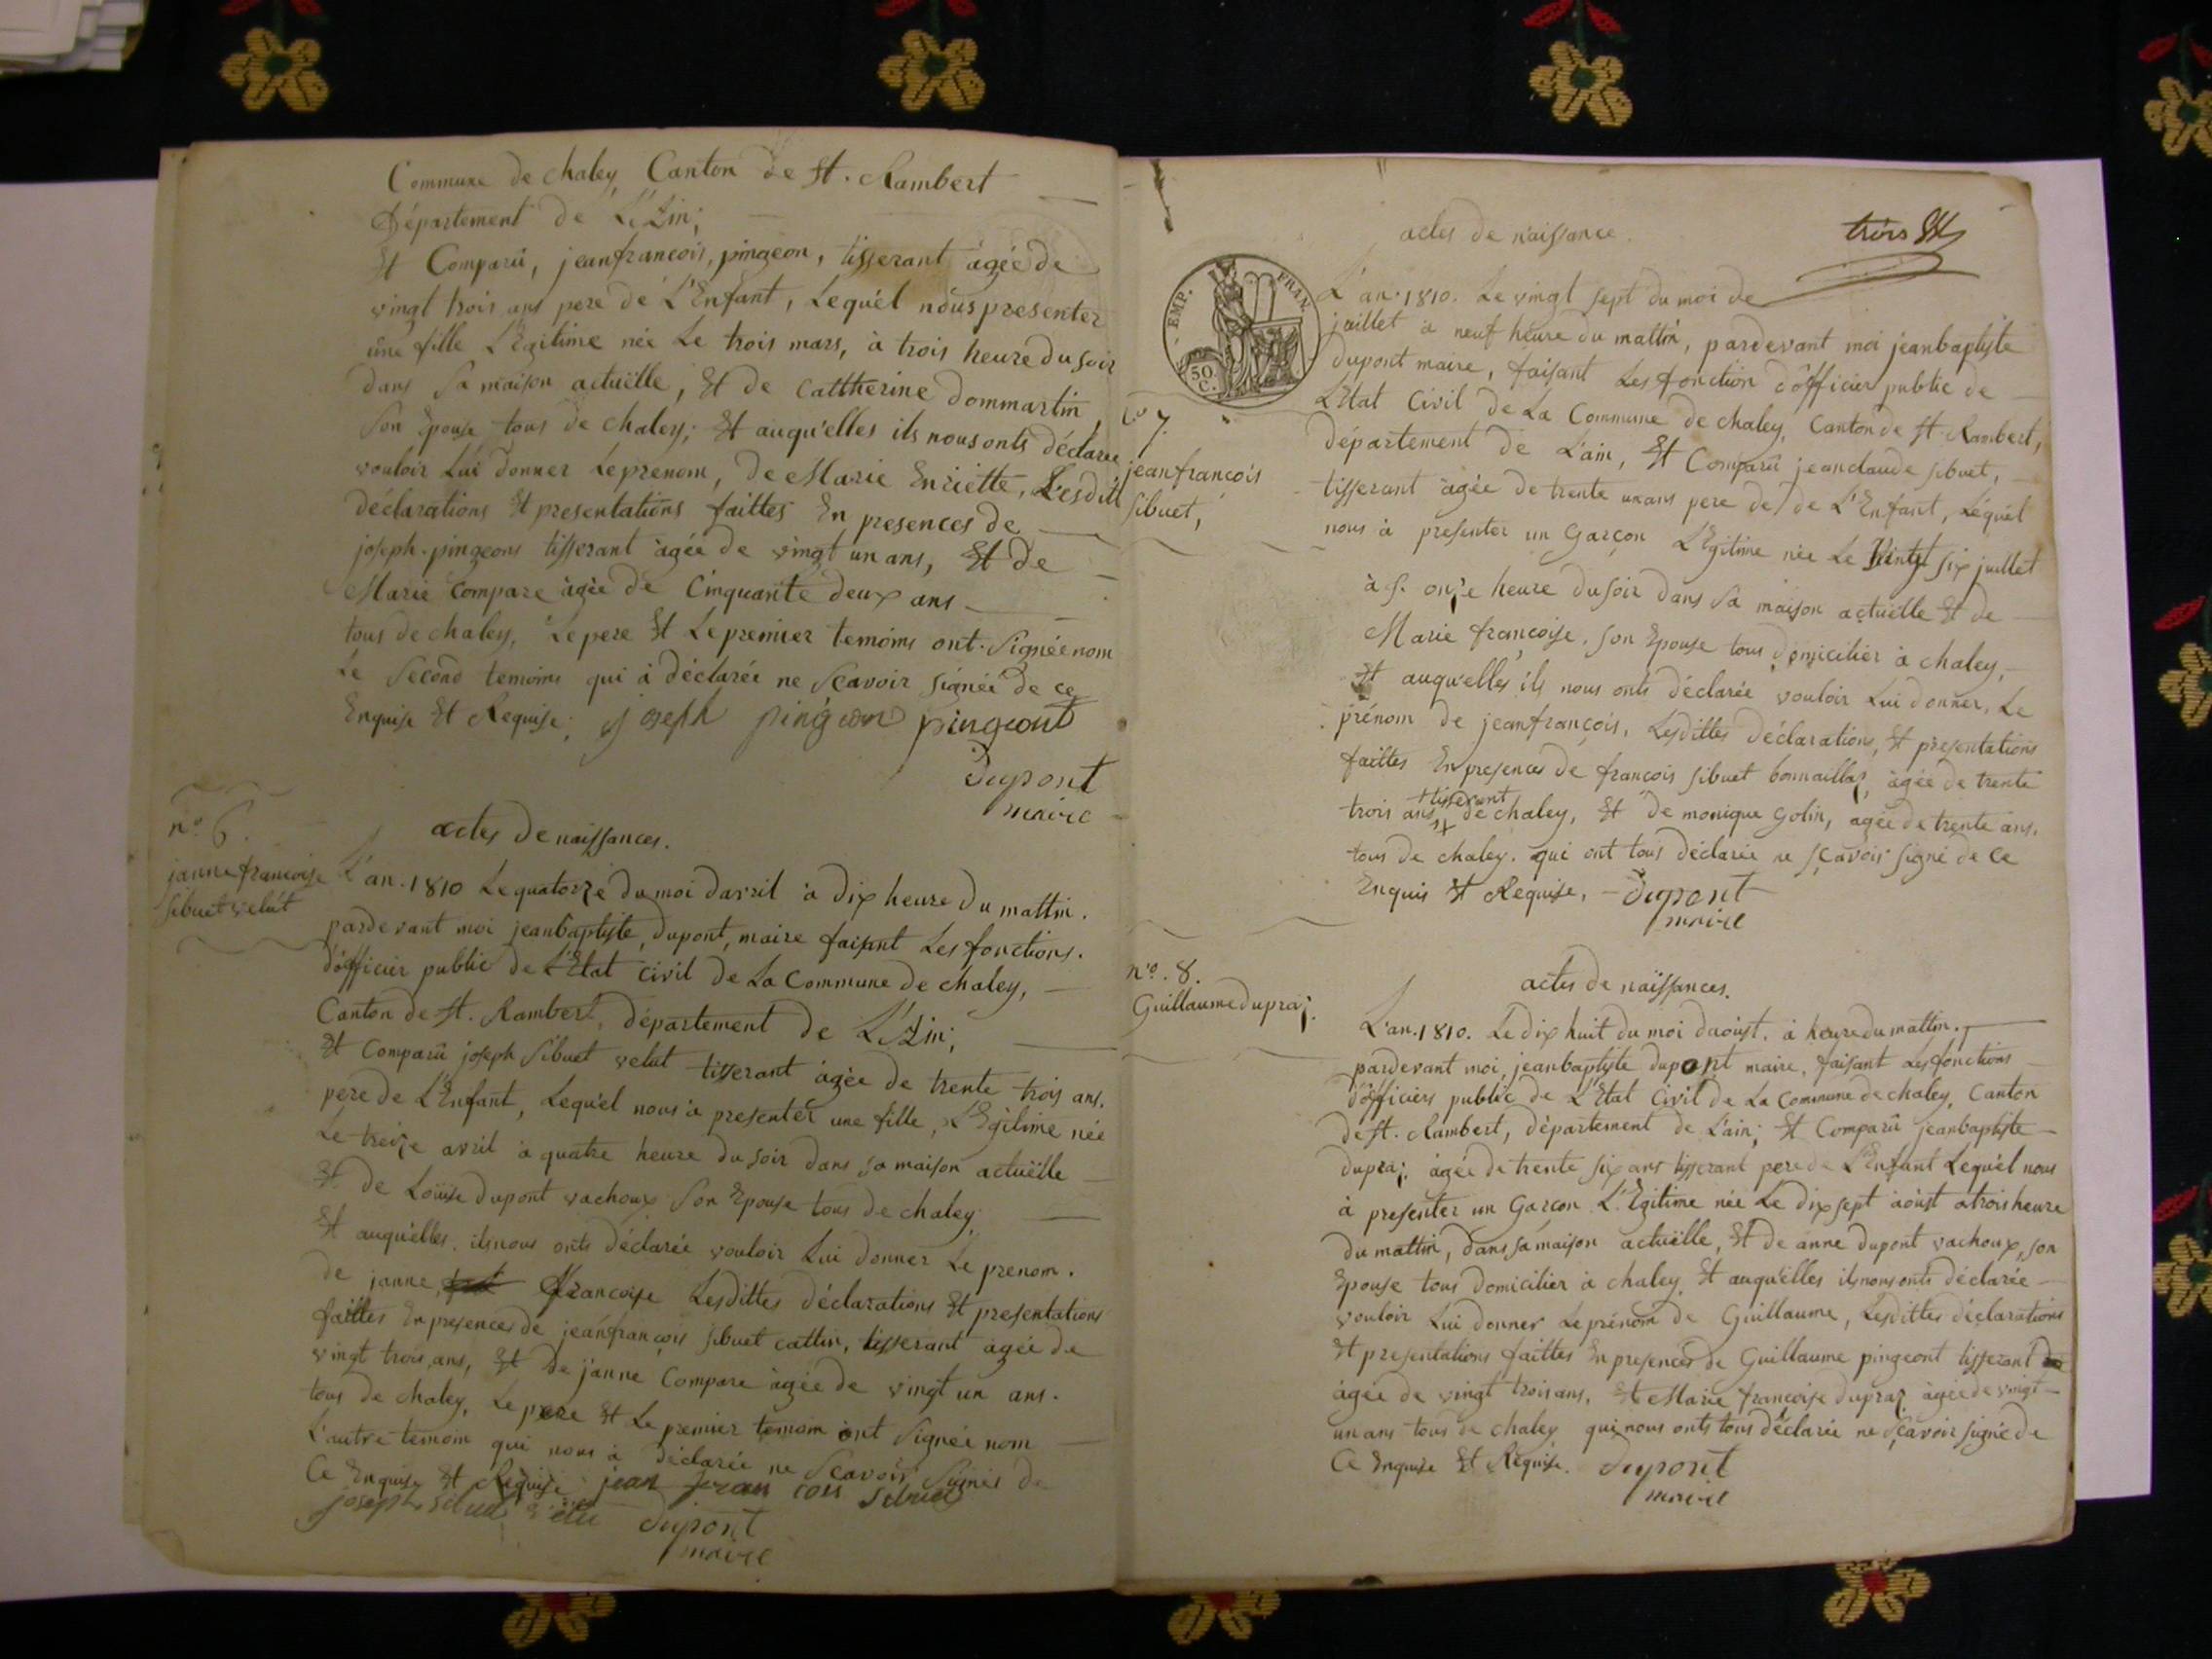 Commune de chaley, Canton de St. Rambert
Département de L'Ain;
Et Comparû, jeanfrancois, pingeon, tisserant âgée de
vingt trois ans pere de L'Enfant, Lequ'el nous presenter
une fille L'Egitime née Le trois mars, à trois heure du soir
dans Sa maison actuëlle, Et de Cattherine Dommartin
Son Epouse tous de chaley; Et auqu'elles ils nous onts déclarée
vouloir Lui donner Le prenom, de Marie Enriette, Lesditt
déclarations Et presentations faittes En presences de
joseph. pingeons tisserant âgée de vingt un ans, Et de
Marie Compare âgée de Cinquante deux ans
tous de chaley, Le pere Et Le premier temoins ont. Signée nom
Le Second temoins qui à déclarée ne Scavoir signée de ce
Enquise Et Requise; joseph pingeon pingeont
Dupont
maire
n.º 6.
janne francoise
sibuet velut
actes de naissances.
L'an. 1810 Le quatorze du moi davril à dix heure du mattin.
pardevant moi jeanbaptiste, dupont, maire faisant Les fonctions.
d'officier public de L'Etat Civil de La Commune de chaley,
Canton de St. Rambert, département de L'Ain;
Et Comparû joseph Sibuet velut tisserant âgée de trente trois ans.
pere de L'Enfant, Lequ'el nous à presenter une fille, L'Egitime née
Le treize avril à quatre heure du soir dans sa maison actuëlle
Et de Loüise dupont vachoux Son Epouse tous de chaley.
Et auqu'elles. ils nous onts déclarée vouloir Lui donner Le prenom.
de janne, francoise Lesdittes déclarations Et presentations
faittes En presences de jeanfrancois sibuet cattin, tisserant âgée de
vingt trois ans, Et de janne Compare âgée de vingt un ans.
tous de chaley, Le pere Et Le premier temoin ont Signée nom
L'autre temoin qui nous à déclarée ne Scavoir Signés de
Ce Enquise Et Requise. jean fran cois sibuet
joseph sibuet velu Dupont
maire
actes de naissance.
trois
EMP. FRAN.
50. C.
L'an. 1810. Le vingt sept du moi de
juillet à neuf heure du mattin, pardevant moi jeanbaptiste
dupont maire, faisant Les fonction d'officier public de
L'Etat Civil de La Commune de chaley, Canton de St. Rambert,
département de L'ain, Et Comparû jeanclaude sibuet,
nº 7.
jeanfrancois
sibuet,
tisserant âgée de trente un ans pere de de L'Enfant, Léqu'el
nous à presenter un Garçon L'Egitime née Le vingt six juillet
à s. onze heure du soir dans Sa maison actuëlle Et de
Marie françoise. son Epouse tous domicilier à chaley,
Et auqu'elles ils nous onts déclarée vouloir Lui donner, Le
prénom de jeanfrançois, Lesdittes déclarations, Et presentations
faittes En presences de françois sibuet bonnaillaz, âgée de trente
tisserant
trois ans de chaley, Et de monique Golin, agée de trente ans,
tous de chaley. qui ont tous déclarée ne sçavoir signé de ce
Enquis Et Requise, Dupont
maire
nº. 8.
Guillaume dupraz.
actes de naissances.
L'an. 1810. Le dix huit du moi daoust. à heure du mattin.
pardevant moi, jeanbaptiste dupont maire, faisant Les fonctions
d'officiers public de L'Etat Civil de La Commune de chaley, Canton
de St. Rambert, département de L'ain; Et Comparû jeanbaptiste
dupraz. âgée de trente six ans tisserant pere de L'Enfant Lequ'el nous
à presenter un Garçon L'Egitime née Le dix sept aoust a trois heure
du mattin, dans sa maison actuëlle, Et de anne dupont vachoux, son
Epouse tous domicilier à chaley, Et auqu'elles ils nous onts déclarée
vouloir Lui donner Le prénom de Guillaume, Lesdittes déclarations
Et presentations faittes En presences de Guillaume pingeont tisserant
âgée de vingt trois ans, Et Marie françoise dupraz âgée de vingt
un ans tous de chaley qui nous onts tous déclarée ne sçavoir signé de
Ce Enquise Et Requise. Dupont
maire